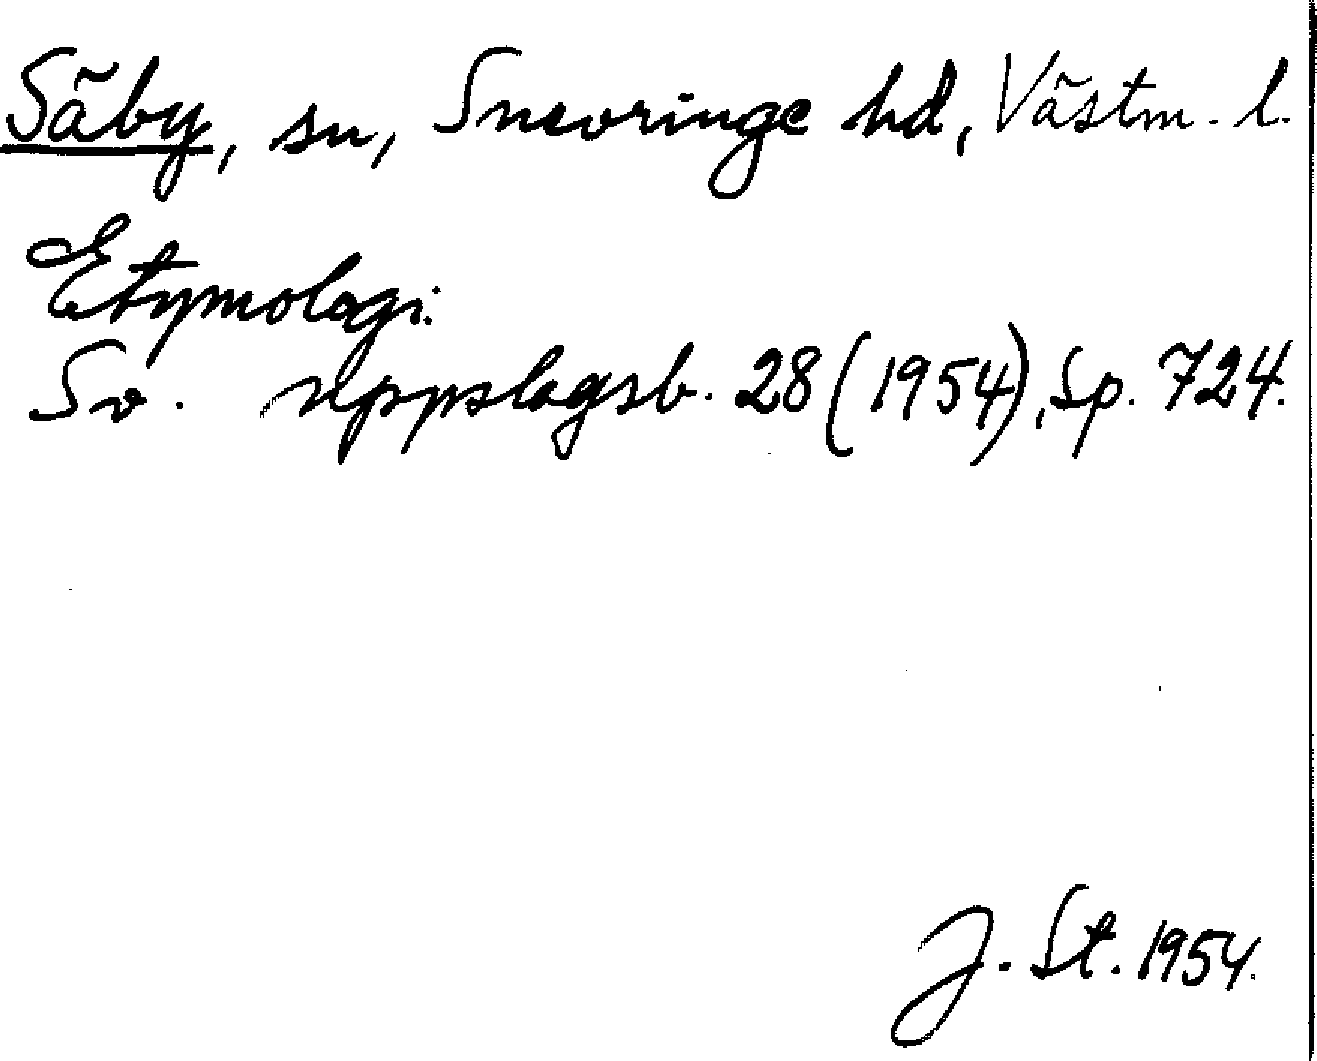 Säby, sn, Snevringe hd, Västm. l.
Etymologi:
Sv. uppslagsb. 28 (1954), Sp. 724.
J. St. 1954.